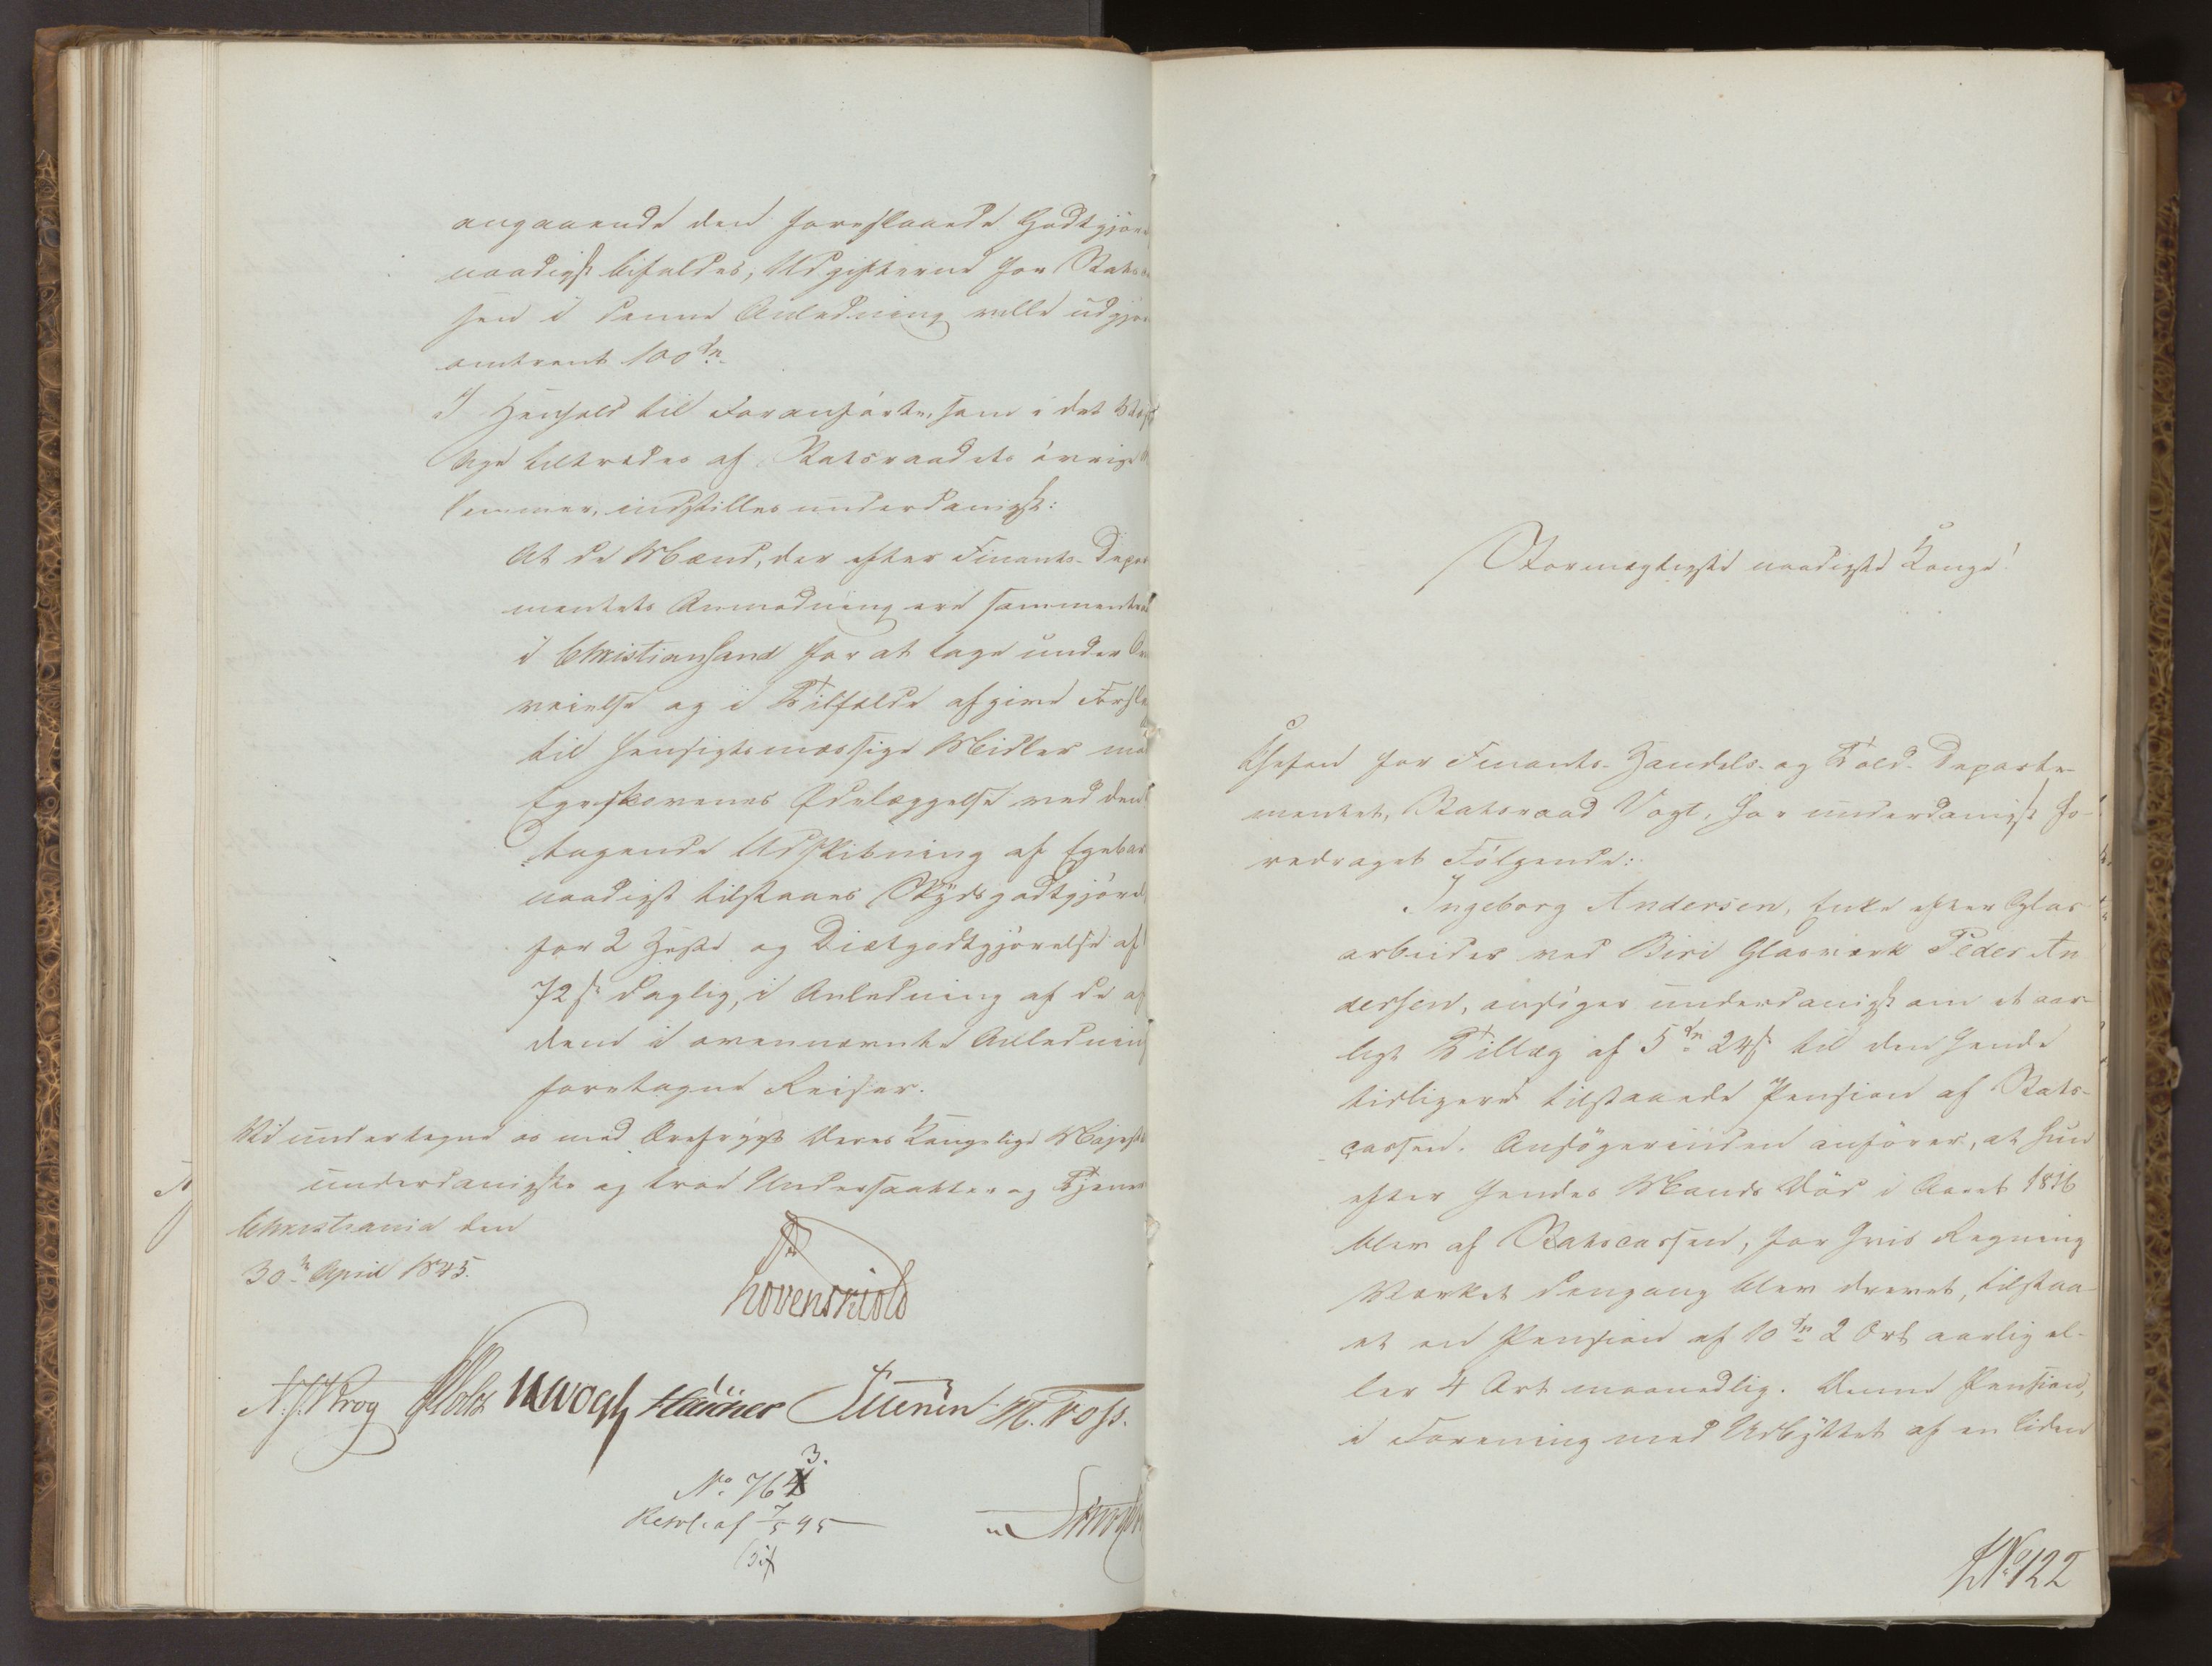 angaaende den foreslaaede Godtgjør
naadigst bifaldes, Udgifterne for Stats
sen i denne Anledning ville udgjør
omtrent 100 Spd.
I Henhold til Foranførte, som i det Væs
lige tiltrædes af Statsraadets øvrige
lemmer, indstilles underdanigst:
At de Mænd, der efter Finants-Depar
mentets Anmodning ere sammentraad
i Christiansand for at tage under O
veielse og i Tilfælde afgive Forsl
til hensigtsmæssige Midler mo
Egeskovenes Ødelæggelse ved den
tagende Udskibning af Egebar
naadigst tilstaaes Skydsgodtgjørel
for 2 Heste og Diætgodtgjørelse af
72 s daglig, i Anledning af de af
dem i ovennævnte Anledning
foretagne Reiser.
Vi undertegne os med Ærefrygt Deres Kongelige Majest
underdanigste og troe Undersaatter og Tjener
Christiania den
30te April 1845.
Løvenskiold
N. J. Krog Holst JHVogt Hauner M. Voss.
No. 764 3.
Resol. af 7/5 45
Stormægtigste naadigste Konge!
Chefen for Finants- Handels- og Told-Departe-
mentet, Statsraad Vogt, har underdanigst fo-
redraget Følgende:
Ingeborg Andersen, Enke efter Glas
arbeider ved Biri Glasværk Peder An
dersen, ansøger underdanigst om et aar-
ligt Tillæg af 5 Spd. 24 s til den hende
tidligere tilstaaede Pension af Stats-
cassen. Ansøgerinden anfører, at hun
efter hendes Mands Død i Aaret 1816
blev af Statscassen, for hvis Regning
Værket dengang blev drevet, tilstaa-
et en Pension af 10 Spd. 2 Ort aarlig el-
ler 4 Ort maanedlig. Denne Pension,
i Forening med Udbyttet af en liden
No. 122